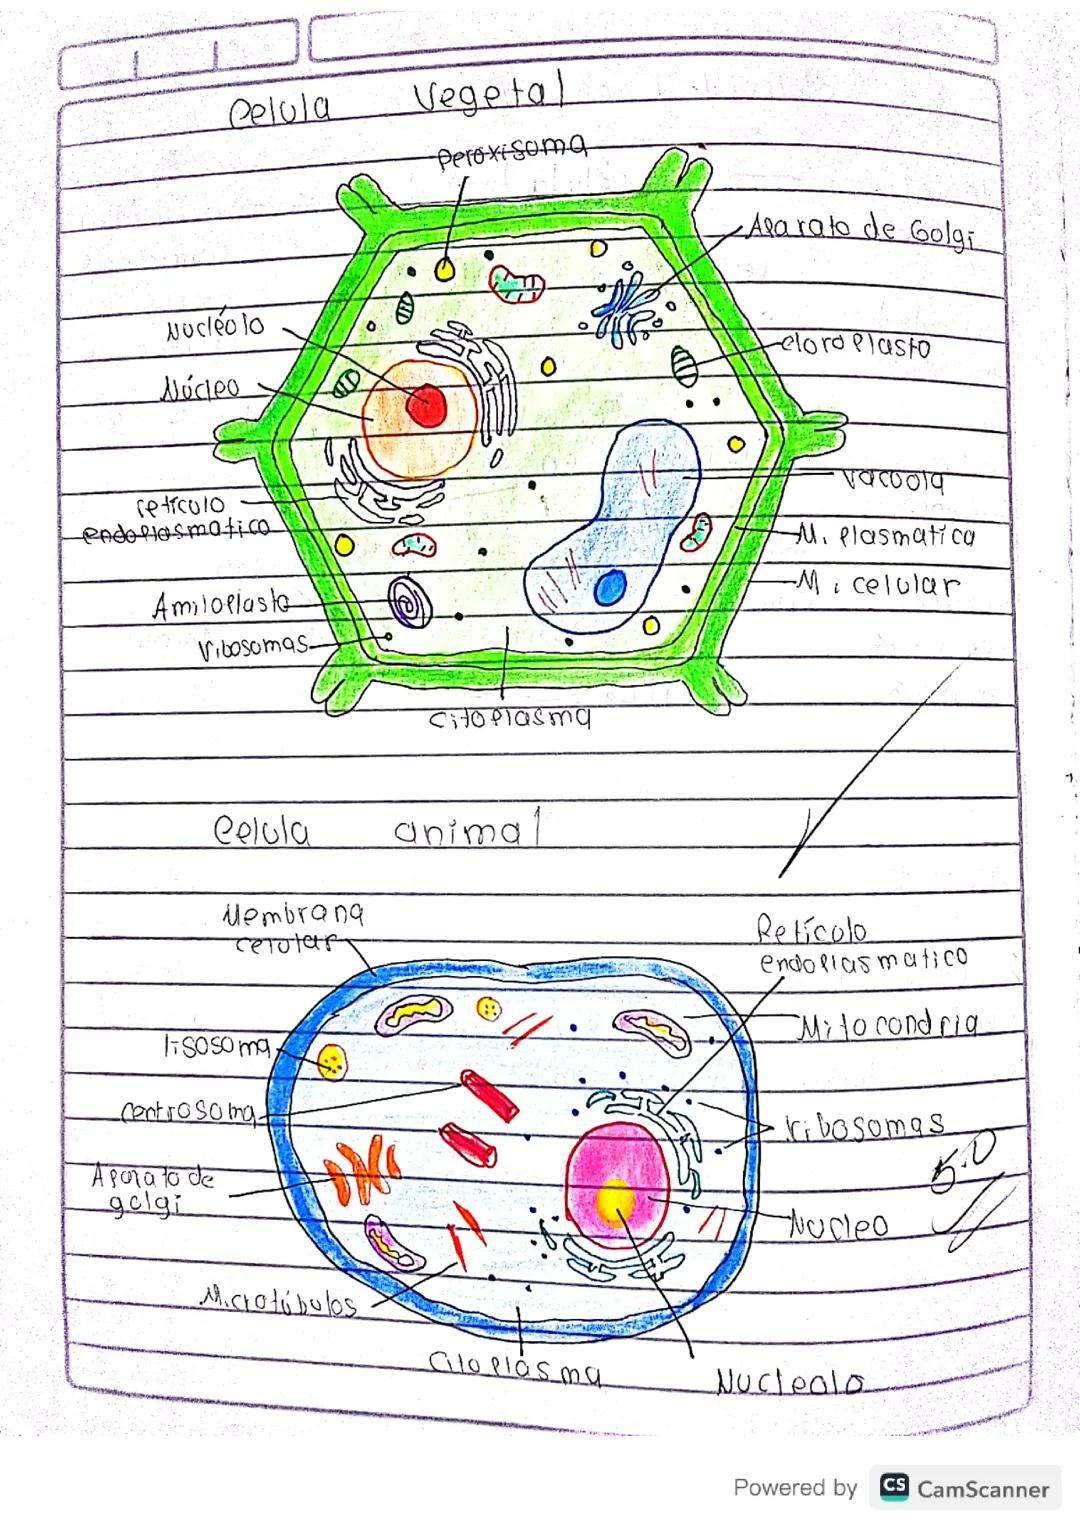 Celula Vegetal
Peroxisoma
Aparato de Golgi
Nucléolo
cloroplasto
Núcleo
vacuola
retículo
endoplasmatico
M. Plasmatica
M. celular
Amiloplasto
ribosomas
citoplasma
Celula animal
Membrana
celular
Retículo
endoplasmatico
Mitocondria
lisosoma
centrosoma
ribosomas
5.0
Aparato de
golgi
Nucleo
Microtúbulos
Citoplasma
Nucleolo
Powered by CS CamScanner